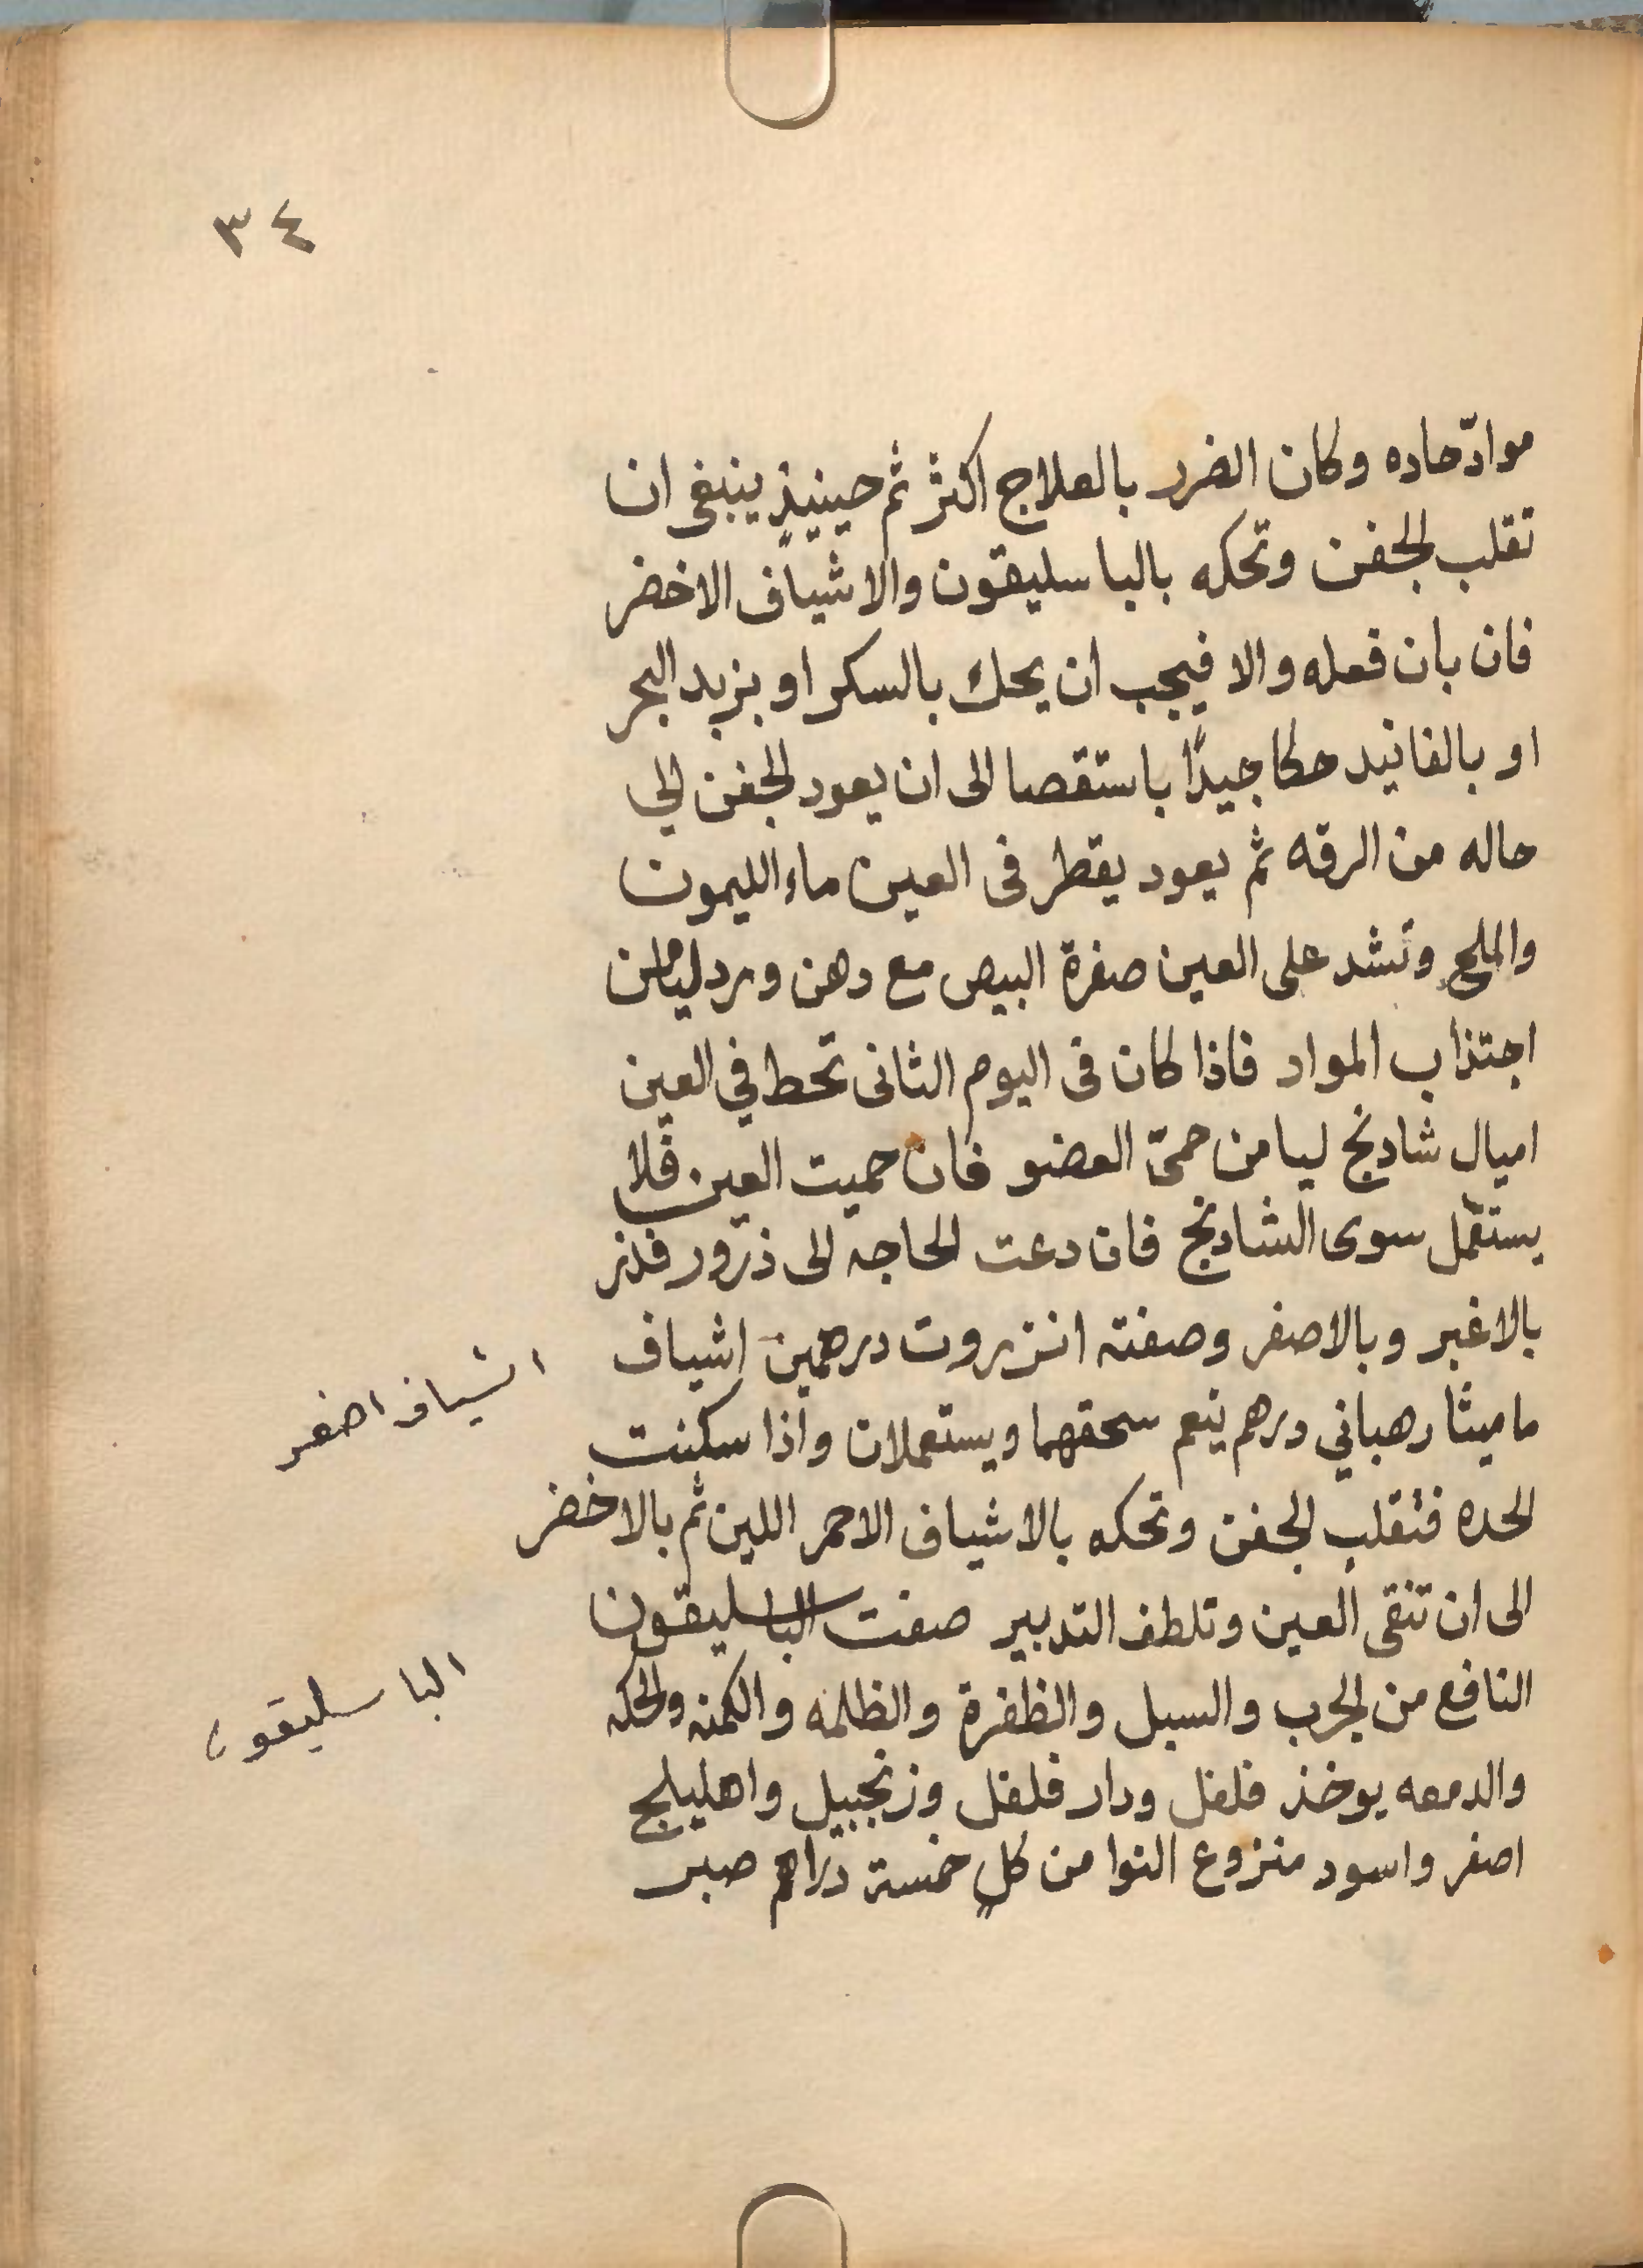 ٣٤
موادّ حاده وكان الضرر بالعلاج اكثر ثم حينيذٍ ينبغى ان
تقلب الجفن وتحكه بالباسليقون والاشياف الاخضر
فان بان فعله والا فيجب ان يحك بالسكر او بزبد البحر
او بالفانيد حكا جيدًا باستقصا الى ان يعود الجفن الي
حاله من الرقه ثم يعود يقطر فى العين ماء الليمون
والملح وتشد على العين صفرة البيض مع دهن ورد ليامن
اجتذاب المواد فاذا كان فى اليوم الثانى تحط في العين
اميال شادنج ليامن حمىّ العضو فان حميت العين فلا
يستعمل سوى الشادنج فان دعت الحاجه الى ذرور فذر
بالاغبر وبالاصفر وصفته انزروت درهمين اشياف
اشياف اصفر
ماميثا رهباني درهم ينعم سحقهما ويستعملان واذا سكنت
الحده فتقلب الجفن وتحكه بالاشياف الاحمر اللين ثم بالاخضر
الى ان تنقى العين وتلطف التدبير صفت الباسليقون
الباسليقون
النافع من الجرب والسبل والظفرة والظلمه والكمنه والحكه
والدمعه يوخذ فلفل ودار فلفل وزنجبيل واهليلج
اصفر واسود منزوع النوا من كلٍ خمسة دراهم صبر